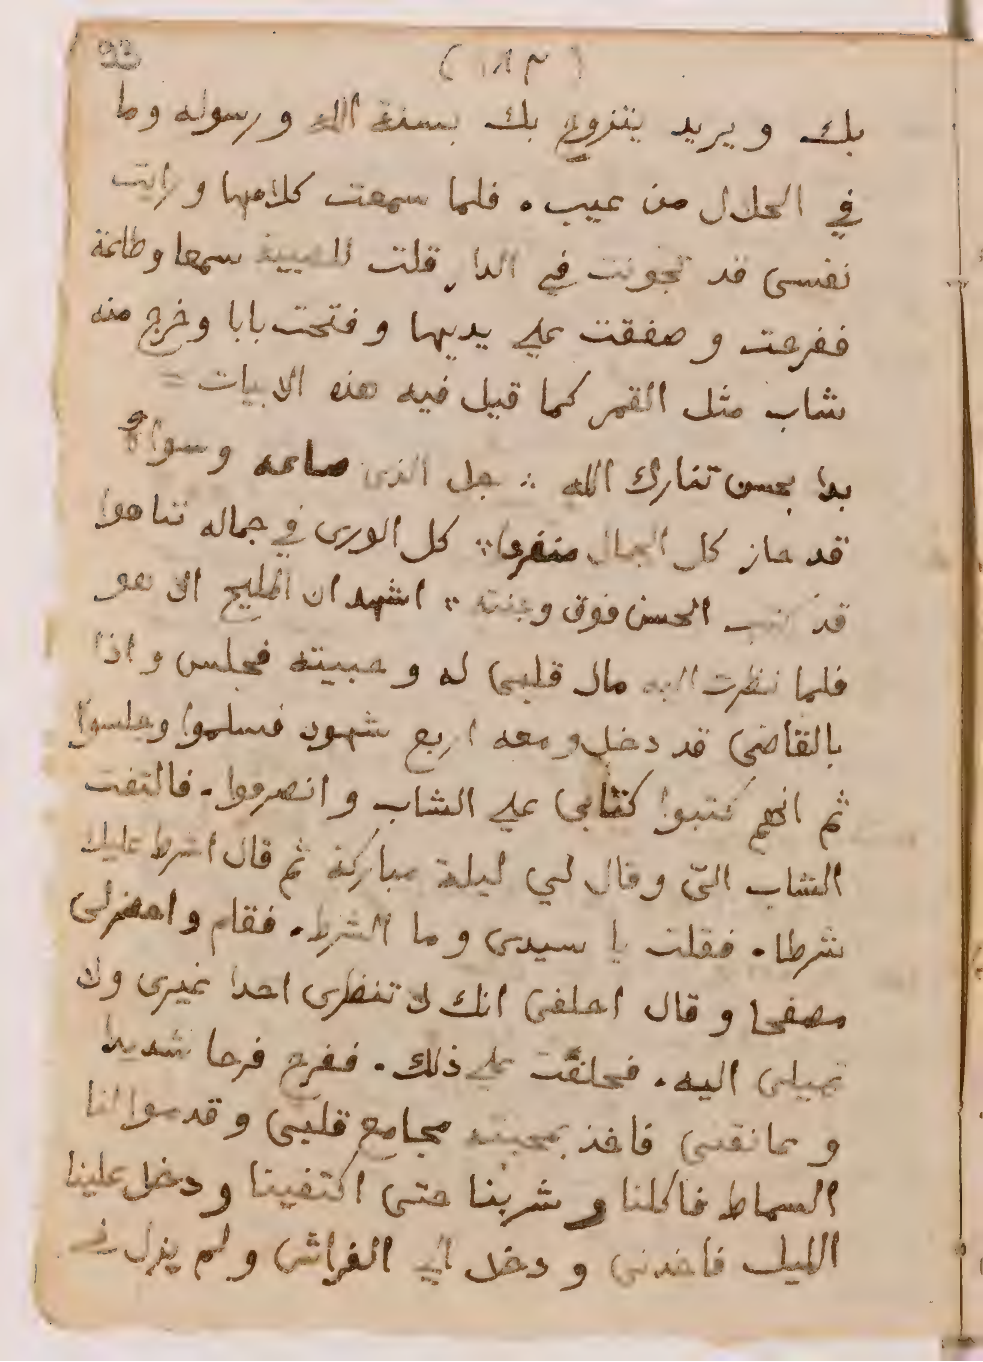 93
(١٨٣)
بك ويريد يتزوج بك بسنة الله ورسوله وما
في الحلال من عيب . فلما سمعت كلامها ورايت
نفسى قد تجونت في الدار قلت للصبية سمعا وطاعة
ففرحت وصفقت علي يديها وفتحت بابا وخرج منه
شاب مثل القمر كما قيل فيه هذه الابيات =
بدا بحسن تبارك الله ∴ جل الذى صاغه وسواه
قد حاز كل الجمال منفردا ∴ كل الورى في جماله تناهوا
قد كتب الحسن فوق وجنته ∴ اشهد ان المليح الا هو
فلما نظرت اليه مال قلبى له وحبيته فجلس واذا
بالقاضى قد دخل ومعه اربع شهود فسلموا وجلسوا
ثم انهم كتبوا كتابي علي الشاب وانصرفوا . فالتفت
الشاب الىّ وقال لي ليلة مباركة ثم قال اشرط عليك
شرطا . فقلت يا سيدى وما الشرط . فقام واحضرلى
مصفحا وقال احلفى انك لا تنظرى احدا غيرى ولا
تميلى اليه . فحلفت علي ذلك . ففرح فرحا شديدا
وعانقنى فاخذ بمحبته مجامع قلبى وقدموا لنا
السماط فاكلنا وشربنا حتى اكتفينا ودخل علينا
الليل فاخذنى ودخل الي الفراش ولم يزل فى